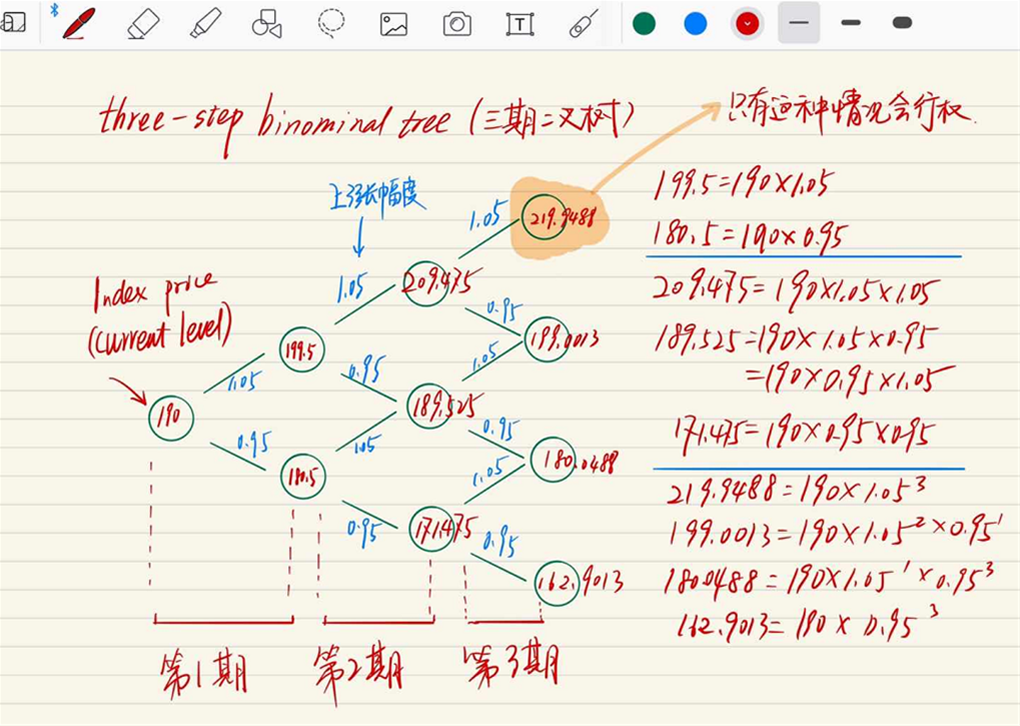 T
three-step binominal tree (三期二叉树)
只有这种情况会行权.
上涨幅度
Index price
(current level)
190
1.05
0.95
199.5
180.5
1.05
0.95
1.05
0.95
209.475
189.525
171.475
1.05
0.95
1.05
0.95
1.05
0.95
219.9488
199.0013
180.0488
162.9013
第1期
第2期
第3期
199.5=190×1.05
180.5=190×0.95
209.475=190×1.05×1.05
189.525=190×1.05×0.95
=190×0.95×1.05
171.475=190×0.95×0.95
219.9488=190×1.05³
199.0013=190×1.05²×0.95¹
180.0488=190×1.05¹×0.95³
162.9013=190×0.95³